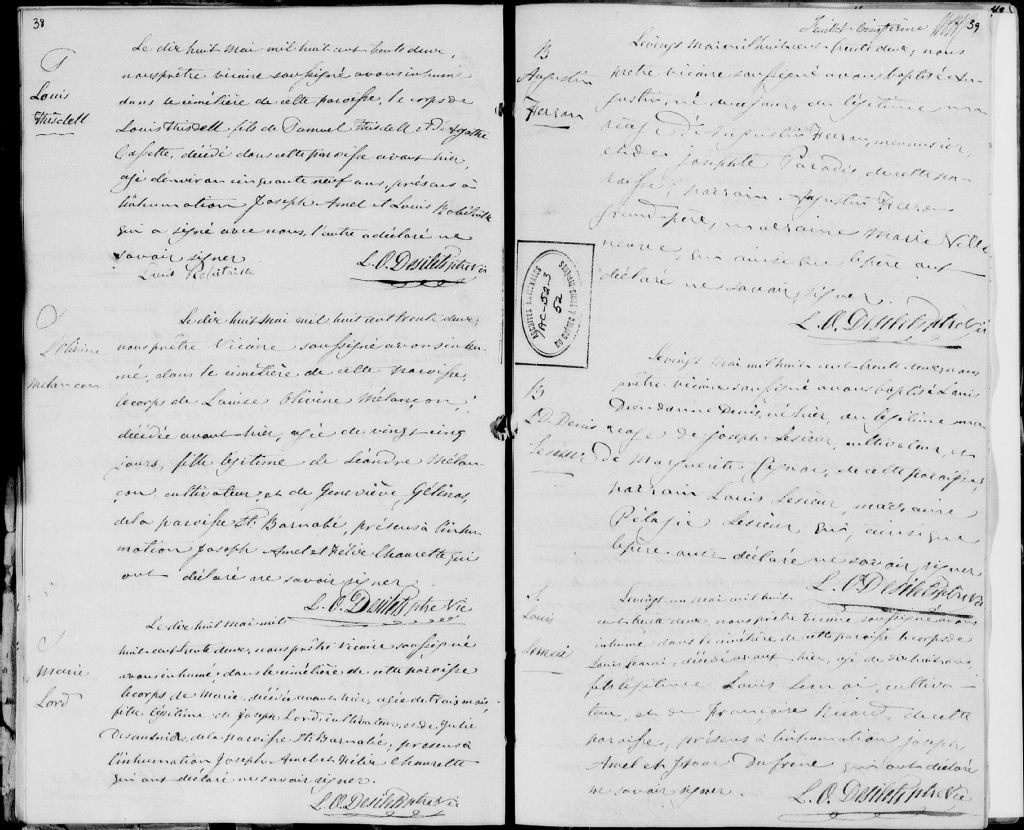 38
S
Louis
Thisdell
Le dix huit mai mil huit cent trente deux,
nous prêtre vicaire soussigné avons inhumé
dans le cimétière de cette paroisse, le corps de
Louis Thisdell, fils de Samuel Thisdell et d'Agathe
décédé dans cette paroisse avant hier,
agé d'environ cinquante neuf ans, présens à
l'inhumation Joseph Amel et Louis Robitaille
qui a signé avec nous, l'autre a déclaré ne
savoir signer
Louis Robitaille
L. O. Desilets ptre Vic
S
Melancon
Le dix huit mai mil huit cent trente deux,
nous prêtre Vicaire soussigné avons inhu-
mé, dans le cimétière de cette paroisse,
le corps de Louise Olivine Mélançon,
décédée avant hier, agée de vingt cinq
jours, fille légitime de Léandre Mélan-
çon cultivateur et de Geneviève Gélinas,
de la paroisse St. Barnabé, présens à l'inhu-
mation Joseph Amel et Félix Chaurette qui
ont déclaré ne savoir signer
L. O. Desilets ptre Vic
S
Marie
Lord
Le dix huit mai mil
huit cent trente deux, nous prêtre Vicaire soussigné
avons inhumé, dans le cimétière de cette paroisse
le corps de Marie, décédée avant hier, agée de trois mois,
fille légitime de Joseph Lord, cultivateur, et de Julie
Desaulniers, de la paroisse St. Barnabé, présens à
l'inhumation Joseph Amel et Félix Chaurette
qui ont déclaré ne savoir signer.
L. O. Desilets ptre Vic
39
B
Augustin
Feron
Le vingt mai mil huit cent trente deux, nous
prêtre vicaire soussigné avons baptisé Au-
gustin, né du légitime ma-
riage d'Augustin Feron, menuisier,
et de Josephte Paradis, de cette pa-
roisse; parrain Augustin Feron
grand-père, marraine Marie Ville-
neuve, qui ainsi que le père ont
déclaré ne savoir signer.
L. O. Desilets ptre Vic
ARCHIVES NATIONALES
AC-52-3
52
DU QUÉBEC À TROIS-RIVIÈRES
B
L. D. Denis
Lesieur
Le vingt mai mil huit cent trente deux, nous
prêtre vicaire soussigné avons baptisé Louis
Dieudonné Denis, né hier, du légitime ma-
riage de Joseph Lesieur, cultivateur, et
de Marguerite de cette paroisse,
parrain Louis Lesieur, marraine
Pélagie Lesieur, qui, ainsi que
le père ont déclaré ne savoir signer
L. O. Desilets ptre Vic
S
Louis
Lemai
Le vingt un mai mil huit
cent trente deux, nous prêtre vicaire soussigné avons
inhumé dans le cimétière de cette paroisse le corps de
Louis Lemai, décédé avant hier, agé de dix huit ans,
fils légitime Louis Lemai, cultiva-
teur, et de Françoise Ricard, de cette
paroisse, présens à l'inhumation Joseph
Amel et Isaac Dufrene qui ont déclaré
ne savoir signer.
L. O. Desilets ptre Vic